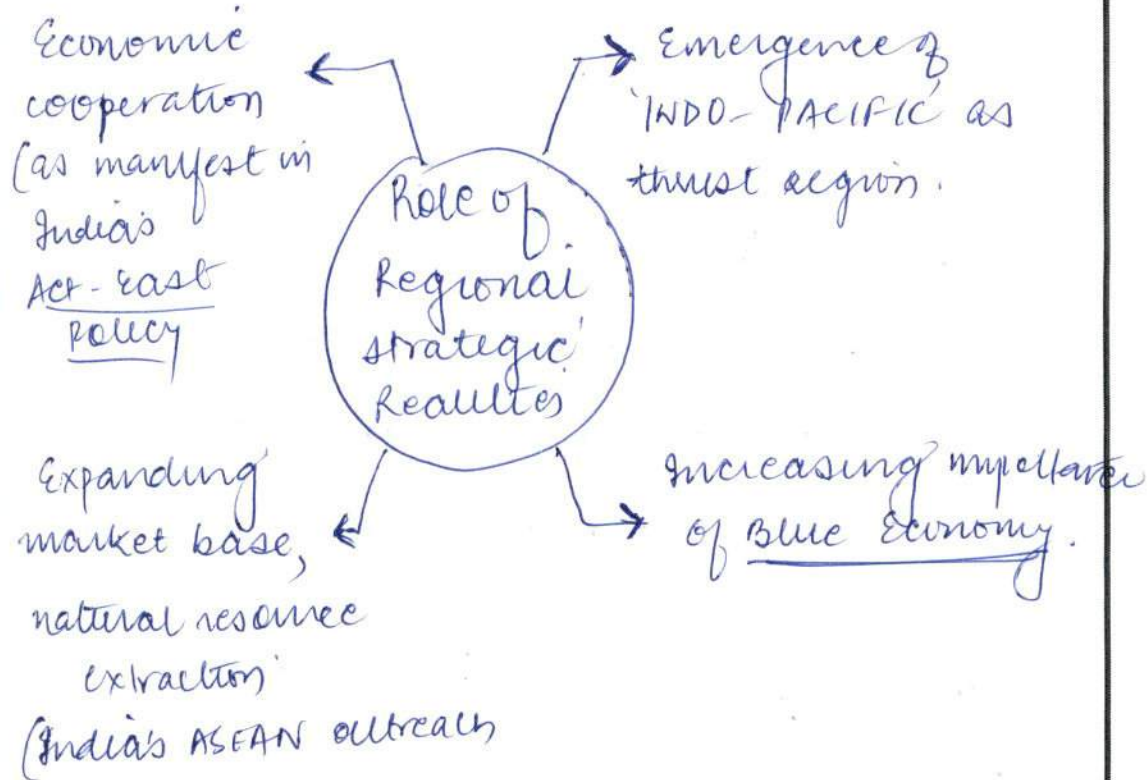 Economic
cooperation
(as manifest in
India's
Act-East
Policy
Emergence of
'INDO-PACIFIC' as
thrust region.
Role of
Regional
strategic
Realities
Expanding
market base,
natural resource
extraction
(India's ASEAN outreach
Increasing importance
of Blue Economy.